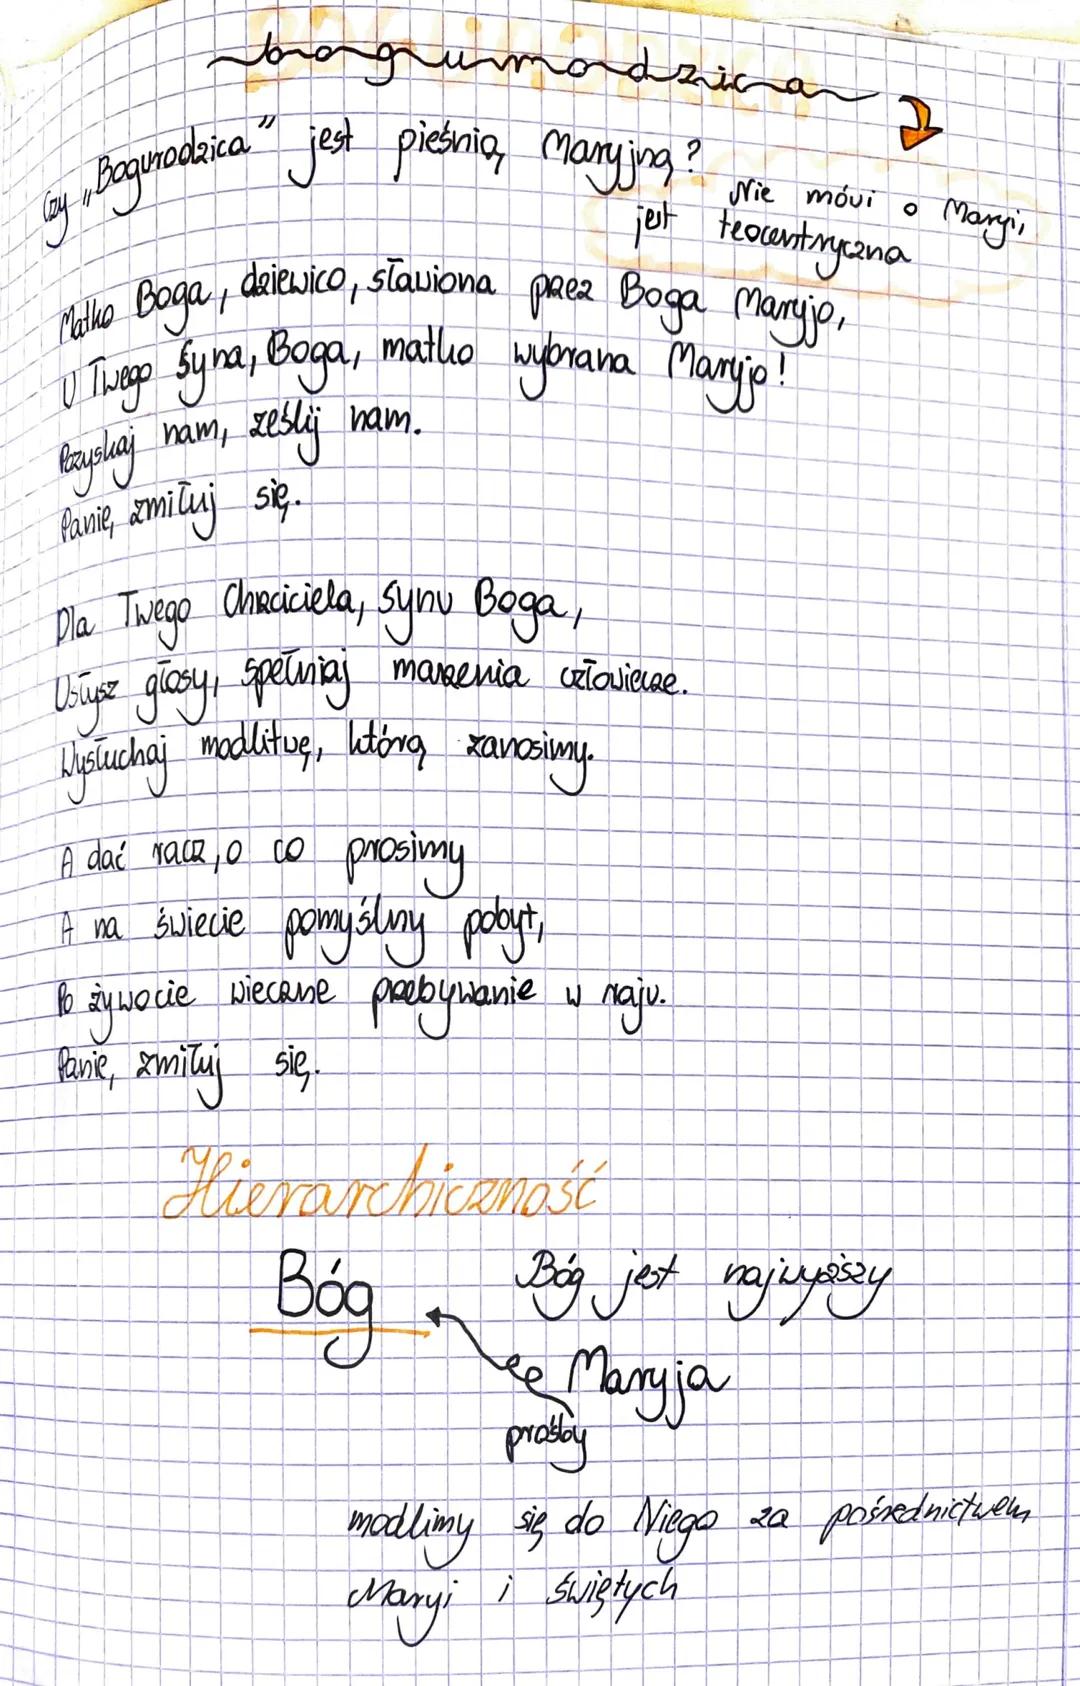 bogurodzica
Czy „Bogurodzica" jest pieśnią Maryjną?
Nie mówi o Maryi,
jest teocentryczna
Matko Boga, dziewico, sławiona przez Boga Maryjo,
U Twego Syna, Boga, matko wybrana Maryjo!
Pozyskaj nam, ześlij nam.
Panie, zmiłuj się.
Dla Twego Chrzciciela, Synu Boga,
Usłysz głosy, spełniaj marzenia człowiecze.
Wysłuchaj modlitwę, którą zanosimy.
A dać racz, o co prosimy
A na świecie pomyślny pobyt,
Po żywocie wieczne przebywanie w raju.
Panie, zmiłuj się.
Hierarchiczność
Bóg
Bóg jest najwyższy
Maryja
prośby
modlimy się do Niego za pośrednictwem
Maryi i świętych